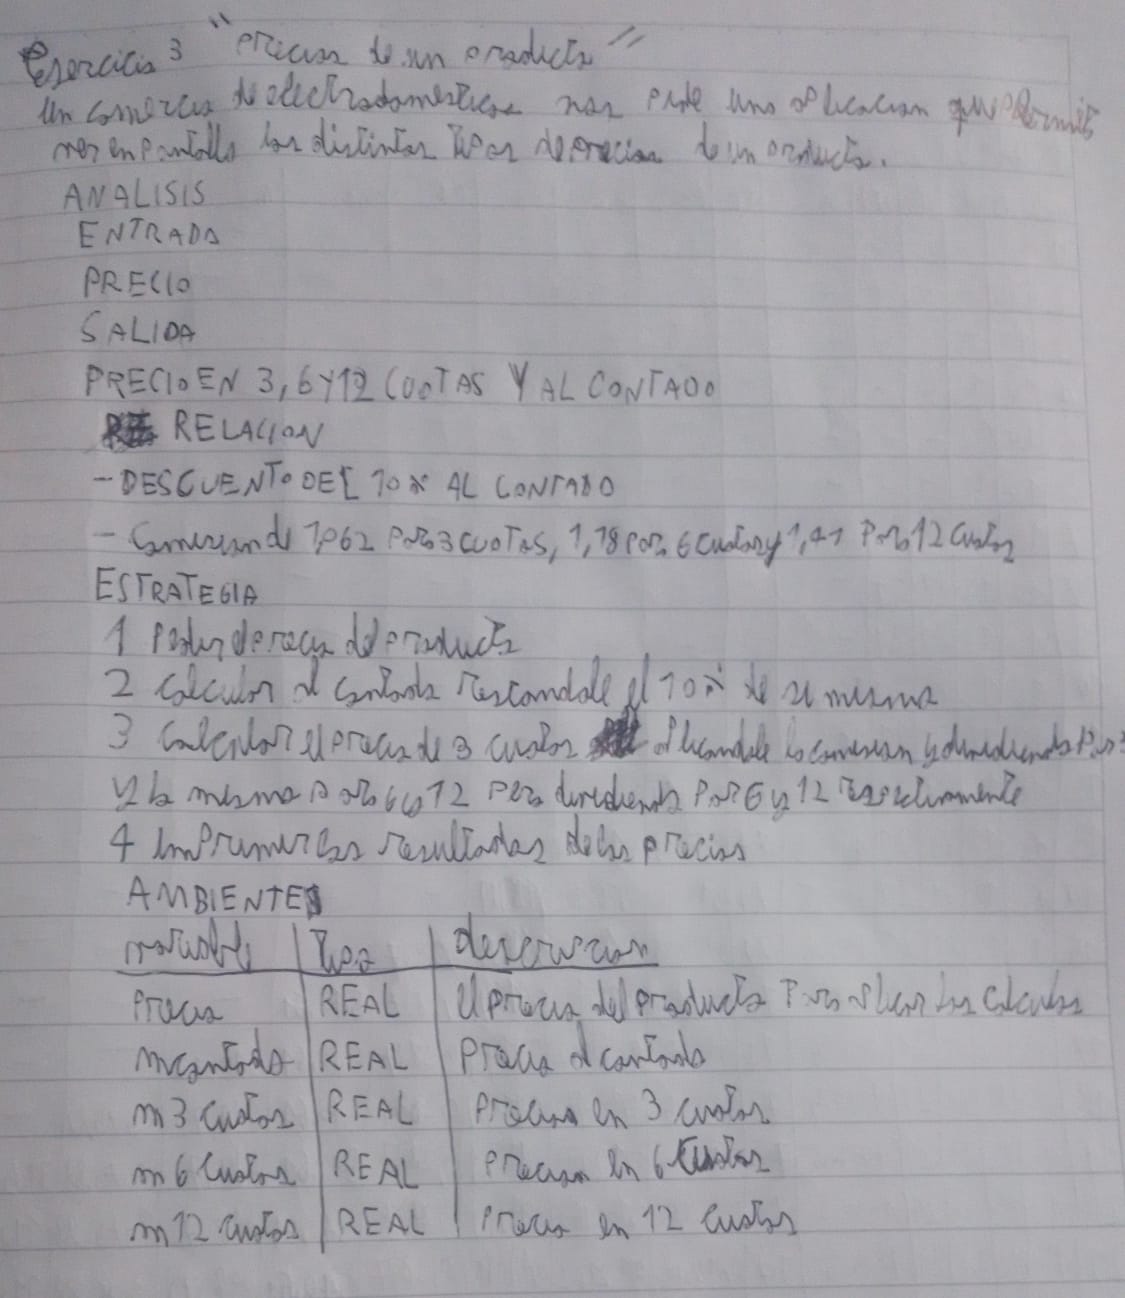 Ejercicio 3 "Precios de un producto"
Un comercio de electrodomesticos nos pide una aplicacion que permita
ver en pantalla los distintos tipos de precios de un producto.
ANALISIS
ENTRADA
PRECIO
SALIDA
PRECIO EN 3, 6 Y 12 CUOTAS Y AL CONTADO
RELACION
- DESCUENTO DEL 10% AL CONTADO
- 3 CUOTAS, 1,18 para 6 cuotas y 1,41 para 12 cuotas
ESTRATEGIA
1 Pedir el precio del producto
2 Calcular al contado restandole el 10% de si mismo
3 Calcular el precio de 3 cuotas aplicandole la y dividiendo por 3
y lo mismo para 6 y 12 pero dividiendo por 6 y 12 respectivamente
4 Imprimir los resultados de los precios
AMBIENTE
variable | tipo | descripcion
precio | REAL | el precio del producto para los calculos
mcontado | REAL | Precio al contado
m3cuotas | REAL | Precio en 3 cuotas
m6cuotas | REAL | Precio en 6 cuotas
m12cuotas | REAL | Precio en 12 cuotas